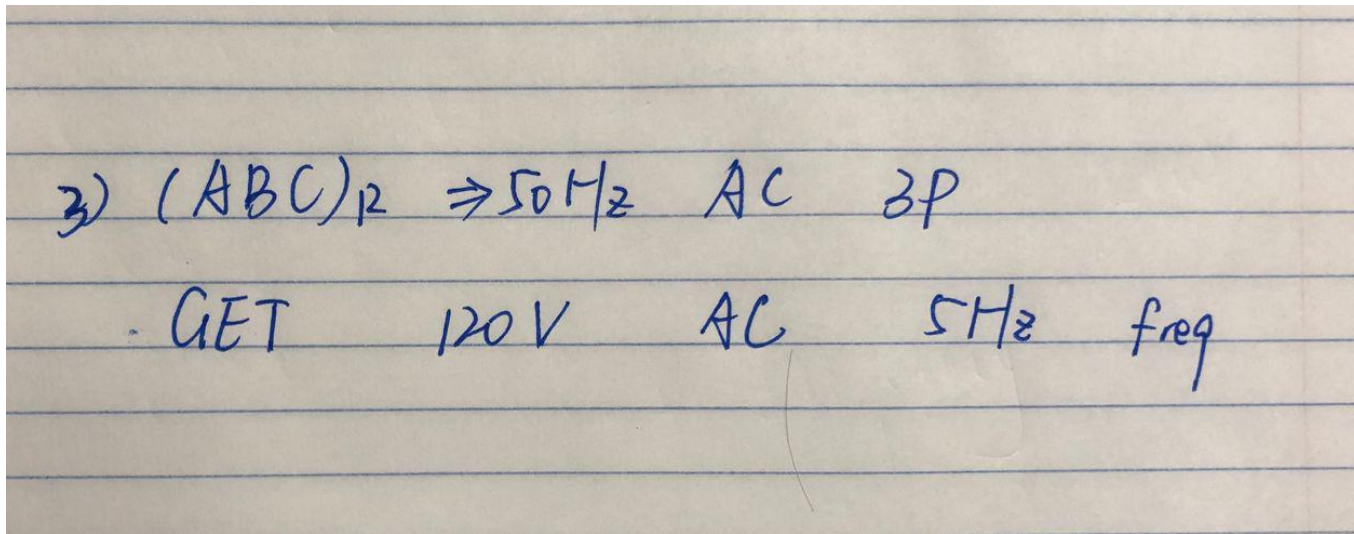 3) (ABC)12 ⇒ 50Hz AC 3P
GET 120V AC 5Hz freq